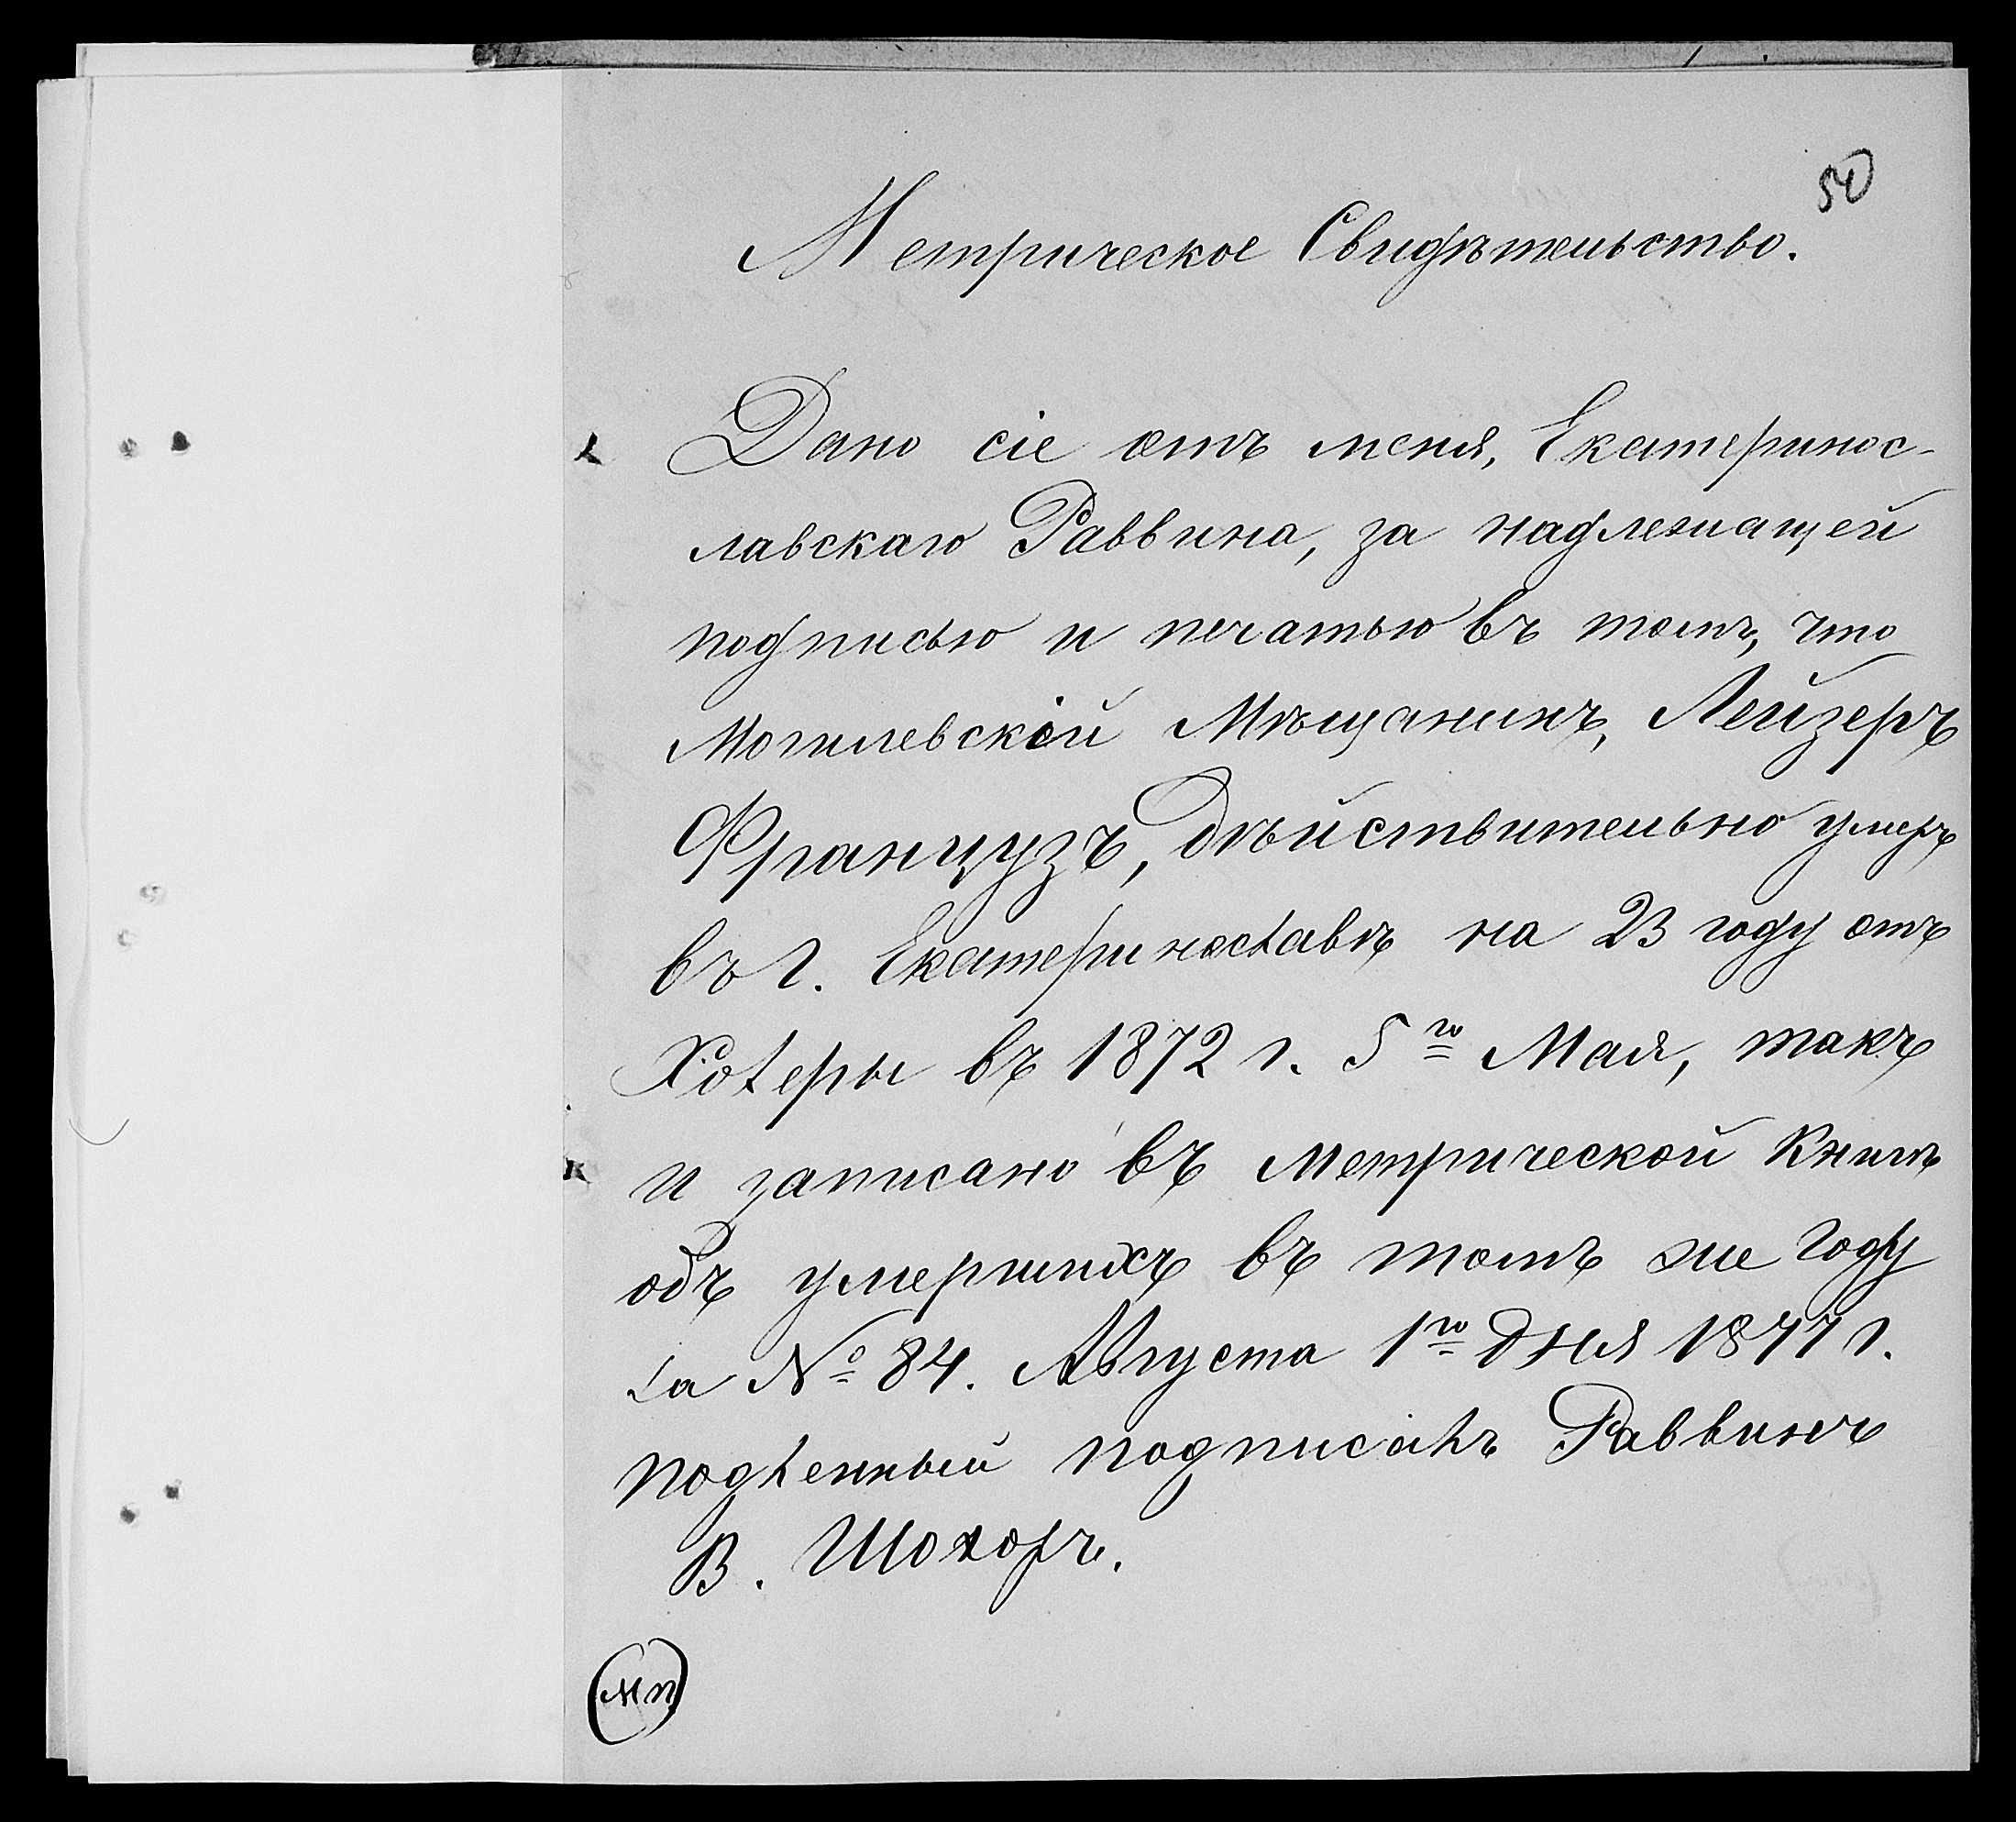 50
Метрическое Свидѣтельство.
Дано сіе отъ меня, Екатеринос-
лавскаго Раввина, за надлежащей
подписью и печатью въ томъ, что
Могилевскій Мѣщанинъ, Лейзеръ
Французъ, дѣйствительно умеръ
въ г. Екатеринославѣ на 23 году отъ
Холеры въ 1872 г. 5го Мая, такъ
и записано въ метрической Книгѣ
объ умершихъ въ томъ же году
за № 84. Августа 1го дня 1877 г.
подленный подписалъ Раввинъ
В. Шохоръ.
(МП)